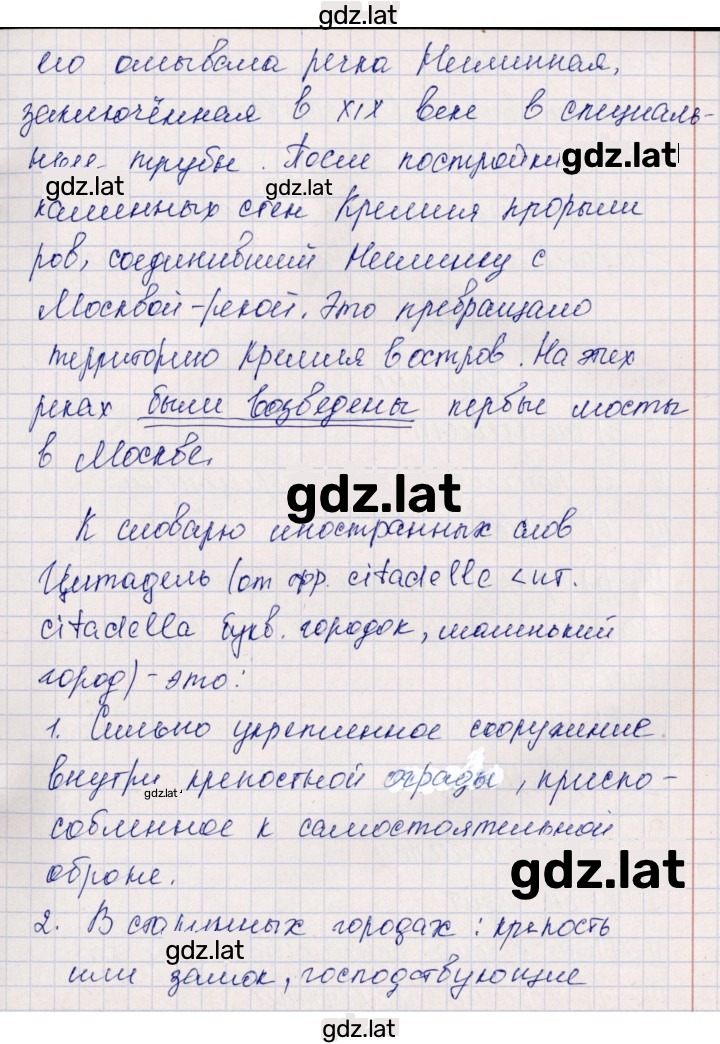 gdz.lat
его омывала речка Неглинная,
заключённая в XIX веке в специаль-
ные трубы. После постройки gdz.lat
gdz.lat gdz.lat
каменных стен Кремля прорыли
ров, соединивший Неглинку с
Москвой-рекой. Это превращало
территорию Кремля в остров. На этих
реках были возведены первые мосты
в Москве.
gdz.lat
К словарю иностранных слов
Цитадель (от фр. citadelle < ит.
citadella букв. городок, маленький
город) - это:
1. Сильно укрепленное сооружение
внутри крепостной ограды, приспо-
gdz.lat
собленное к самостоятельной
обороне.
gdz.lat
2. В старинных городах: крепость
gdz.lat
или замок, господствующие
gdz.lat